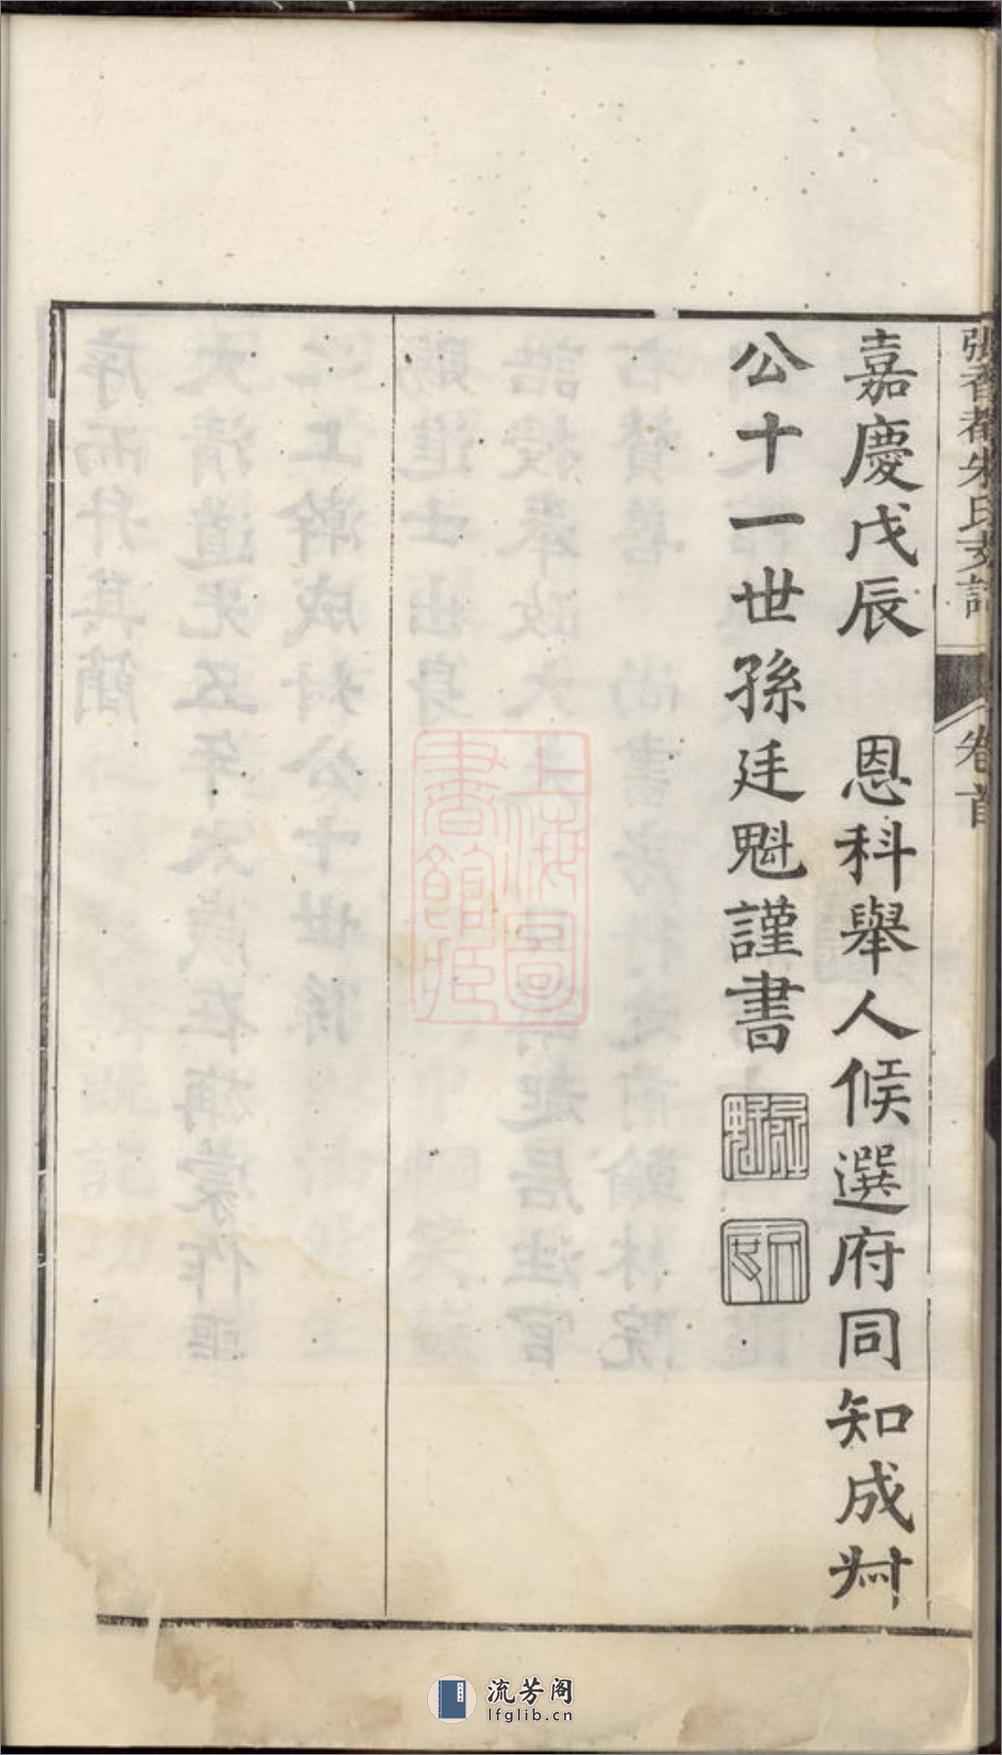 張香都朱氏支譜 卷首
嘉慶戊辰 恩科舉人候選府同知成艸
公十一世孫廷魁謹書
廷魁
上海圖書館藏
流芳阁
lfglib.cn